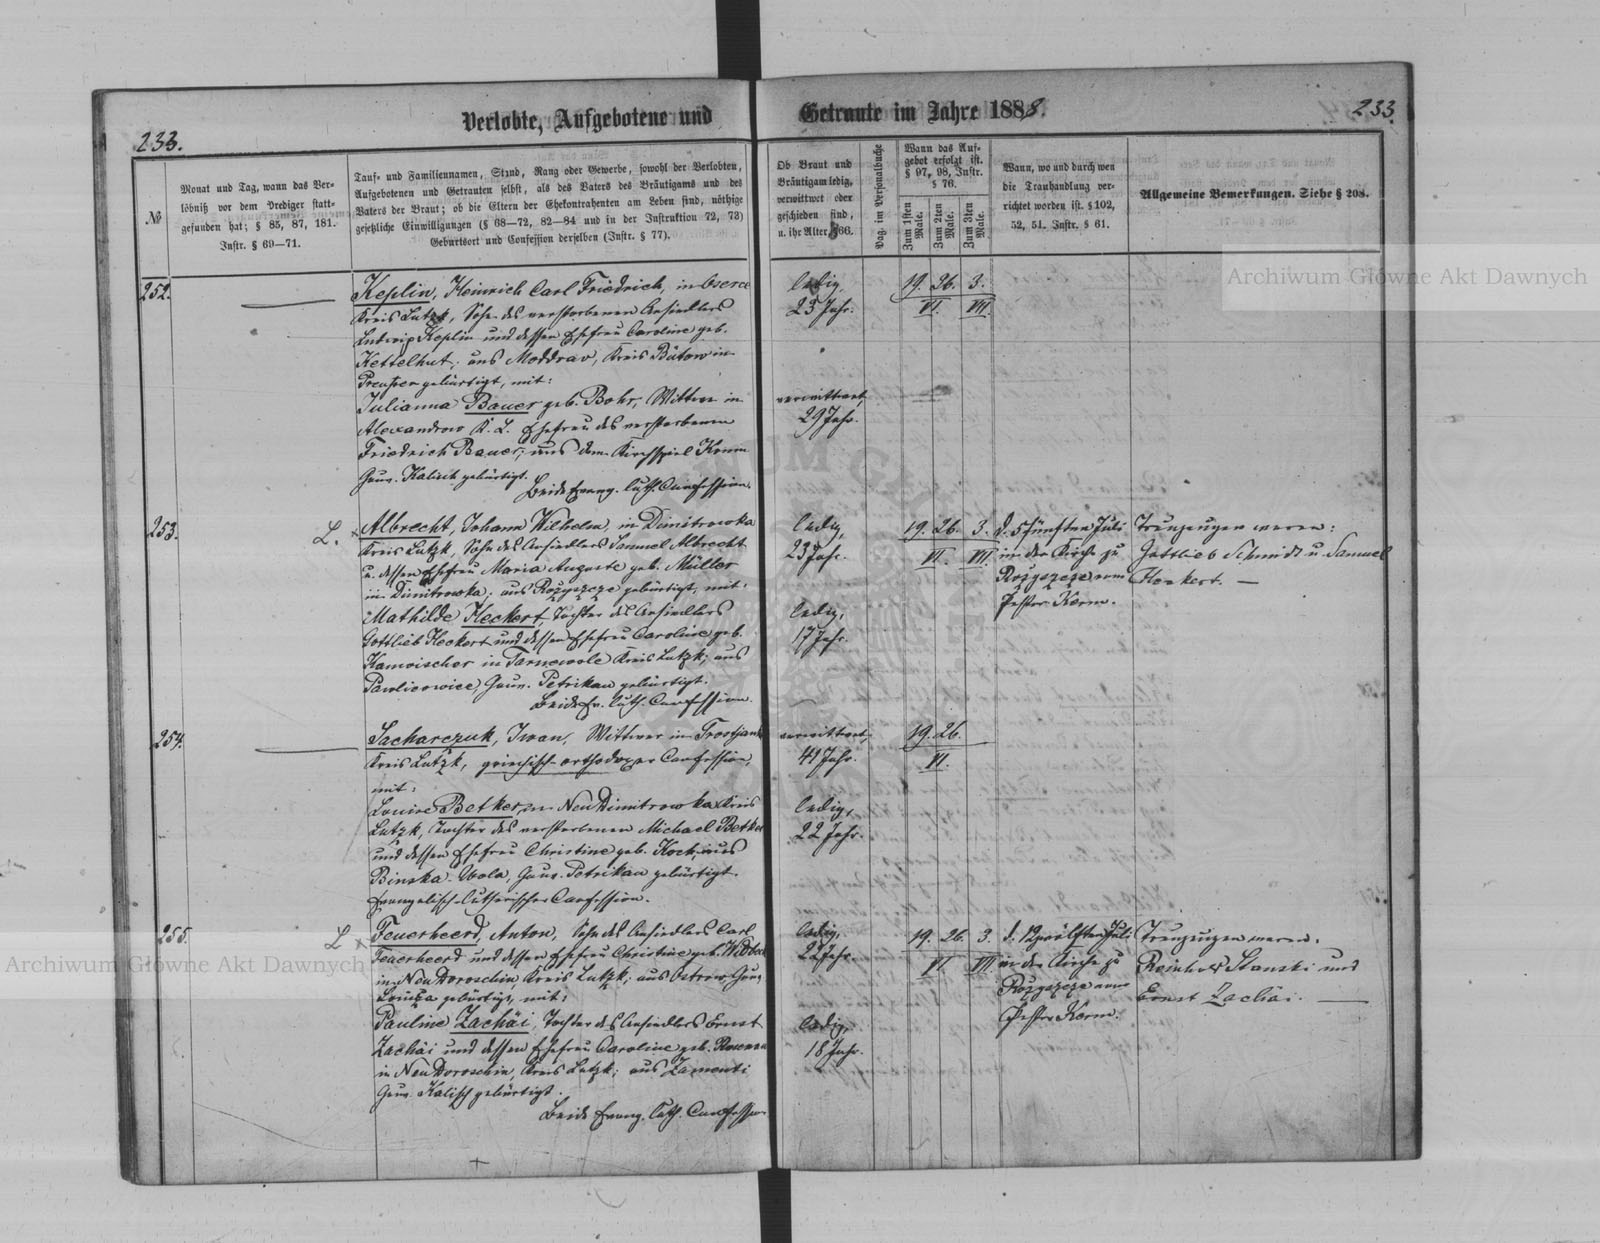 Verlobte, Aufgebotene und
Getraute im Jahre 1888.
233.
233.
№
Monat und Tag, wann das Ver-
löbniß vor dem Prediger statt-
gefunden hat; § 85, 87, 181.
Instr. § 69—71.
Tauf- und Familiennamen, Stand, Rang oder Gewerbe, sowohl der Verlobten,
Aufgebotenen und Getrauten selbst, als des Vaters des Bräutigams und des
Vaters der Braut; ob die Eltern der Ehekontrahenten am Leben sind, nöthige
gesetzliche Einwilligungen (§ 68—72, 82—84 und in der Instruktion 72, 73)
Geburtsort und Confession derselben (Instr. § 77).
Ob Braut und
Bräutigam ledig,
verwittwet oder
geschieden sind,
u. ihr Alter. § 66.
Pag. im Personalbuche
Wann das Auf-
gebot erfolgt ist.
§ 97, 98, Instr.
§ 76.
Zum 1sten
Male.
Zum 2ten
Male.
Zum 3ten
Male.
Wann, wo und durch wen
die Trauhandlung ver-
richtet worden ist. § 102,
52, 51. Instr. § 61.
Allgemeine Bemerkungen. Siehe § 208.
252.
Keplin, Heinrich Carl Friedrich, in Oserce
Kreis Lutzk, Sohn des verstorbenen Ansiedlers
Ludwig Keplin und dessen Ehefrau Caroline geb.
Kettelhut, aus Moddrav, Kreis Bütow in
Preußen gebürtigt, mit:
Julianna Bauer geb. Bohr, Wittwe in
Alexandrow K. L. Ehefrau des verstorbenen
Friedrich Bauer, aus dem Kirchspiel
Gouv. Kalisch gebürtigt.
Beide Evang. luth. Confession.
ledig,
23 Jahr.
19. 26. 3.
VI. VII.
verwittwet,
29 Jahr.
253.
L. × Albrecht, Johann Wilhelm, in Dimitrowka
Kreis Lutzk, Sohn des Ansiedlers Samuel Albrecht
u. dessen Ehefrau Maria Auguste geb. Müller
in Dimitrowka; aus Rozyszcze gebürtigt, mit:
Mathilde Heckert, Tochter des Ansiedlers
Gottlieb Heckert und dessen Ehefrau Caroline geb.
Kamvischer in Tarnowole Kreis Lutzk; aus
Pawlicowice, Gouv. Petrikau gebürtigt.
Beide Ev. luth. Confession.
ledig,
23 Jahr.
19. 26. 3.
VI. VII.
ledig,
17 Jahr.
d. 5 fünften Juli
in der Kirche zu
Rozyszcze vom
Pastor Kerm.
Trauzeugen waren:
Gottlieb Schmidt u. Samuel
Heckert. —
254.
Sacharczuk, Iwan, Wittwer in
Kreis Lutzk, griechisch orthodoxer Confession,
mit:
Louise Betker, in Neu Dimitrowka Kreis
Lutzk, Tochter des verstorbenen Michael Betker
und dessen Ehefrau Christine geb. Koch, aus
Binska-Wola, Gouv. Petrikau gebürtigt.
Evangelisch-Lutherischer Confession.
verwittwet,
41 Jahr.
19. 26.
VI.
ledig,
22 Jahr.
255.
L × Feuerheerd, Anton, Sohn des Ansiedlers Carl
Feuerheerd und dessen Ehefrau Christine geb.
in Neu Doroschin Kreis Lutzk, aus Ostrow, Gouv.
gebürtigt, mit:
Pauline Zachäi, Tochter des Ansiedlers Ernst
Zachäi und dessen Ehefrau Caroline geb.
in Neu Doroschin, Kreis Lutzk; aus Zamenti
Gouv. Kalisch gebürtigt.
Beide Evang. luth. Confession
ledig,
22 Jahr.
19. 26. 3.
VI. VII.
ledig,
18 Jahr.
d. 12 zwölften Juli
in der Kirche zu
Rozyszcze vom
Pastor Kerm.
Trauzeugen waren:
Reinhold Stanski und
Ernst Zachäi. —
Archiwum Główne Akt Dawnych
Archiwum Główne Akt Dawnych